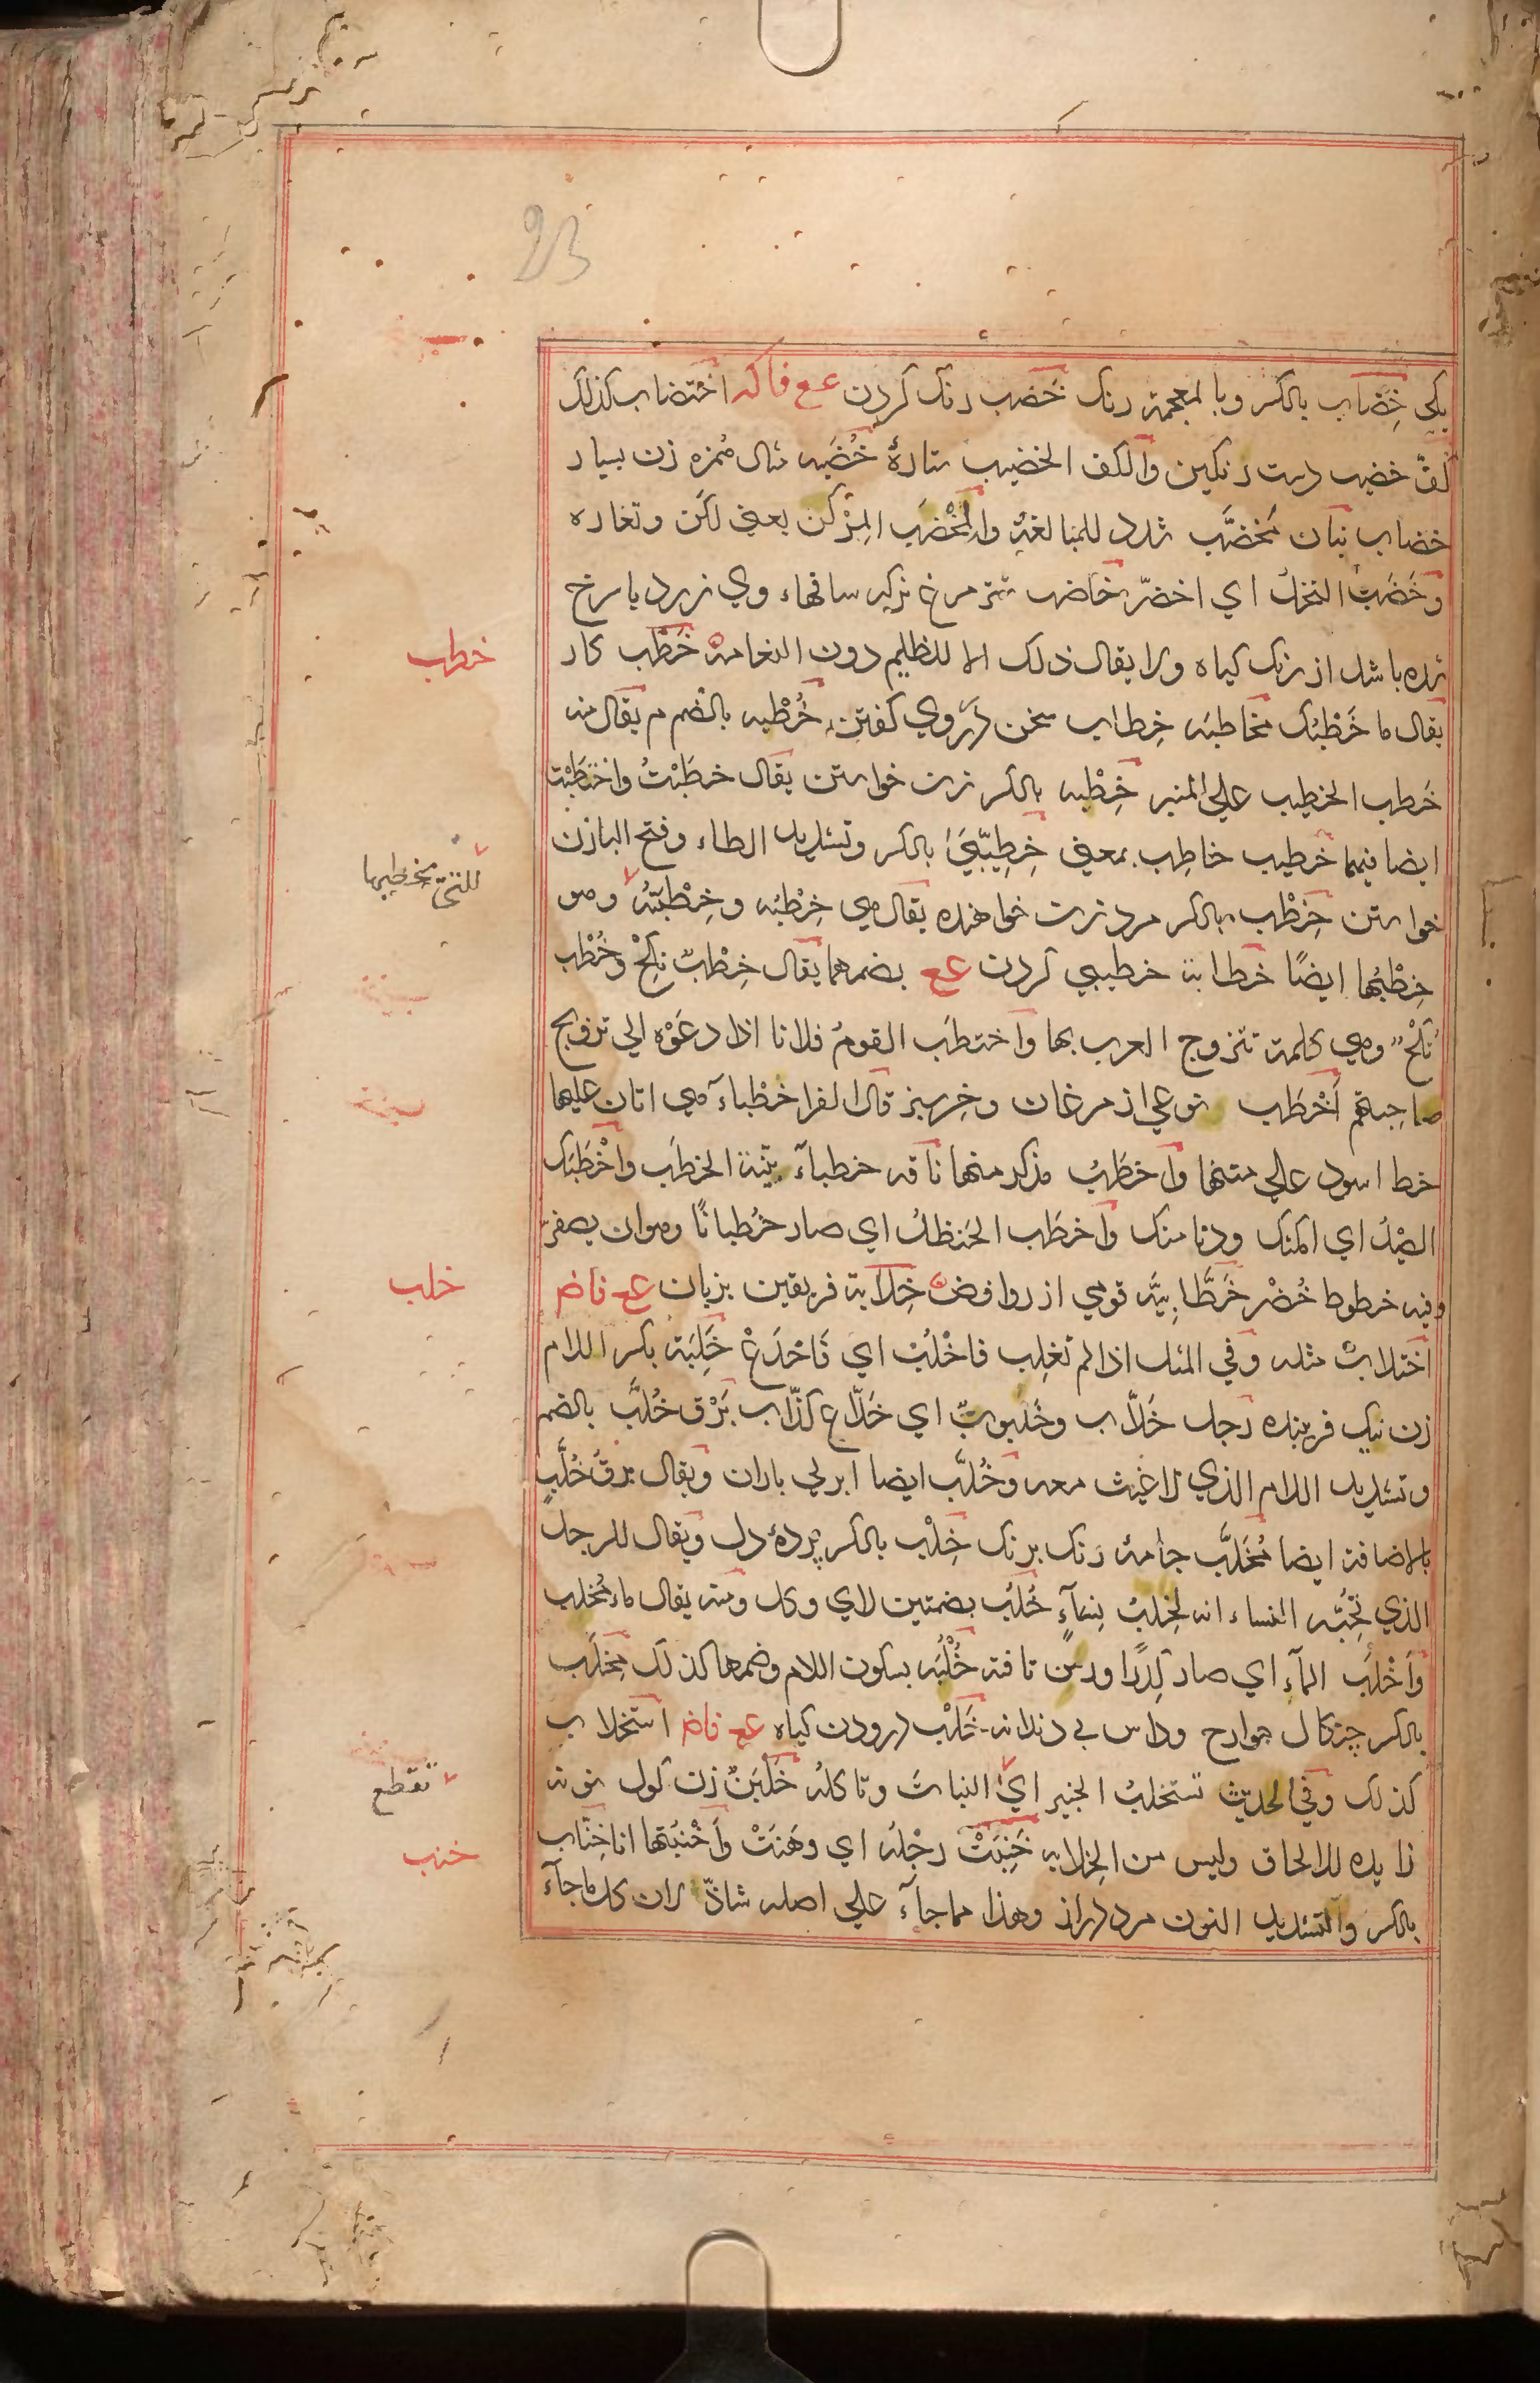 23
يكي خِضَاب بالكسر وبالمعجمة رنك خَضب رنك كردن عع فا كه اختضاب كذلك
كفّ خضيب دست رنكين والكف الخضيب ستارهٔ خُضَبه مثال هُمَزه زن بسيار
خضاب بنان مُخضَّب شدد للمبالغة والمِخْضَب المِرْكن يعني لكن وتغاره
وخَضَبَ النخلُ اي اخضرّ خاضب شتر مرغ نركه ساقهاء وي زرد يا سرخ
شده باشد از رنك كياه ولا يقال ذلك الا للظليم دون النعامة خَطْب كار
يقال ما خَطْبُك مخاطبه خِطاب سخن در روي كفتن خُطْبه بالضم م يقال منه
خَطب الخطيب علي المنبر خِطْبه بالكسر زن خواستن يقال خطَبْتُ واختَطَبْت
ايضا فيهما خطيب خاطِب بمعني خِطِيّبَيَ بالكسر وتشديد الطاء وفتح البا زن
خواستن خِطْب بالكسر مرد زن خواهنده يقال هي خِطْبُه وخِطْبَتُهُ وهو
خِطْبُها ايضًا خَطابة خطيبي كردن عع بضمهما يقال خِطْبٌ نِكْحٌ وخُطْب
نُكْحٌ وهي كلمة تتزوج العرب بها واختطَب القومُ فلانا اذا دعَوْه الي تزويج
صاحِبتهم أخْطَب نوعي از مرغان وخِر نيز قال الفرا خَطْباءَ هي اتان عليها
خط اسود علي متنها واخطَبُ مذكر منها ناقه خطباءَ بيّنة الخطَب واخْطَبَك
الصيْدُ اي امكنك ودنا منك واخطَب الحَنظلُ اي صار خُطبانًا وهو ان يصفرّ
وفيه خطوط خُضْر خَطَّابِيَّه قومي از روافض خِلَابة فريفتن بزبان عع فاض
اختلاب مثله وفي المثل اذا لم تغلِب فاخْلُبْ اي فَاخدَعْ خَلِبَة بكسر اللام
زن نيك فريبنده رجل خَلَّاب وخَلَبوبٌ اي خَدّاع كذّاب بَرْق خُلَّب بالضم
وتشديد اللام الذي لا غيث معه وخُلَّب ايضا ابر بي باران ويقال برقُ خُلَّبٍ
بالاضافة ايضا مُخَلَّب جامهٔ رنك برنك خِلْب بالكسر پردهٔ دل ويقال للرجل
الذي تحِبُّه النساء انه لخِلبُ نِساءٍ خُلُب بضمتين لاي وكل ومنه يقال ماء مُخلِب
وَاَخْلَبَ الماءُ اي صار كَدِرًا ورسن تافته خُلْبُه بسكون اللام وضمها كذلك مِخلَب
بالكسر چنكال جوارح وداس بي دندانه خَلْب درودن كياه عع فاض استخلاب
كذلك وفي الحديث تستخلبُ الخبير اي النبات وتاكله خَلْبَنٌ زن كول نونه
زايده للالحاق وليس من الخِلابه خَنِبَتْ رجْلُه اي وهَنَتْ وأخْنَبْتها انا خِنَّاب
بالكسر والتشديد النون مرد دراز وهذا مما جاءَ علي اصله شاذّ لان كل ما جاءَ
خطب
للتي يخطبها
خلب
تقطع
خنب